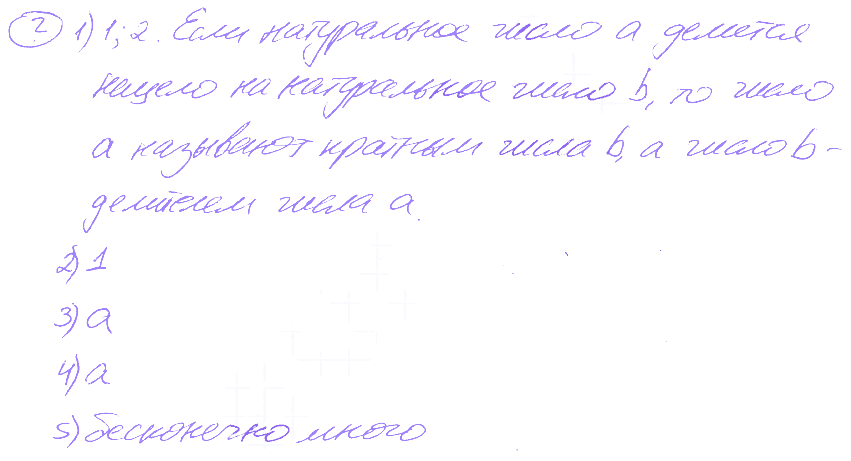 2 1) 1; 2. Если натуральное число a делится
нацело на натуральное число b, то число
a называют кратным числа b, а число b -
делителем числа a.
2) 1
3) a
4) a
5) бесконечно много